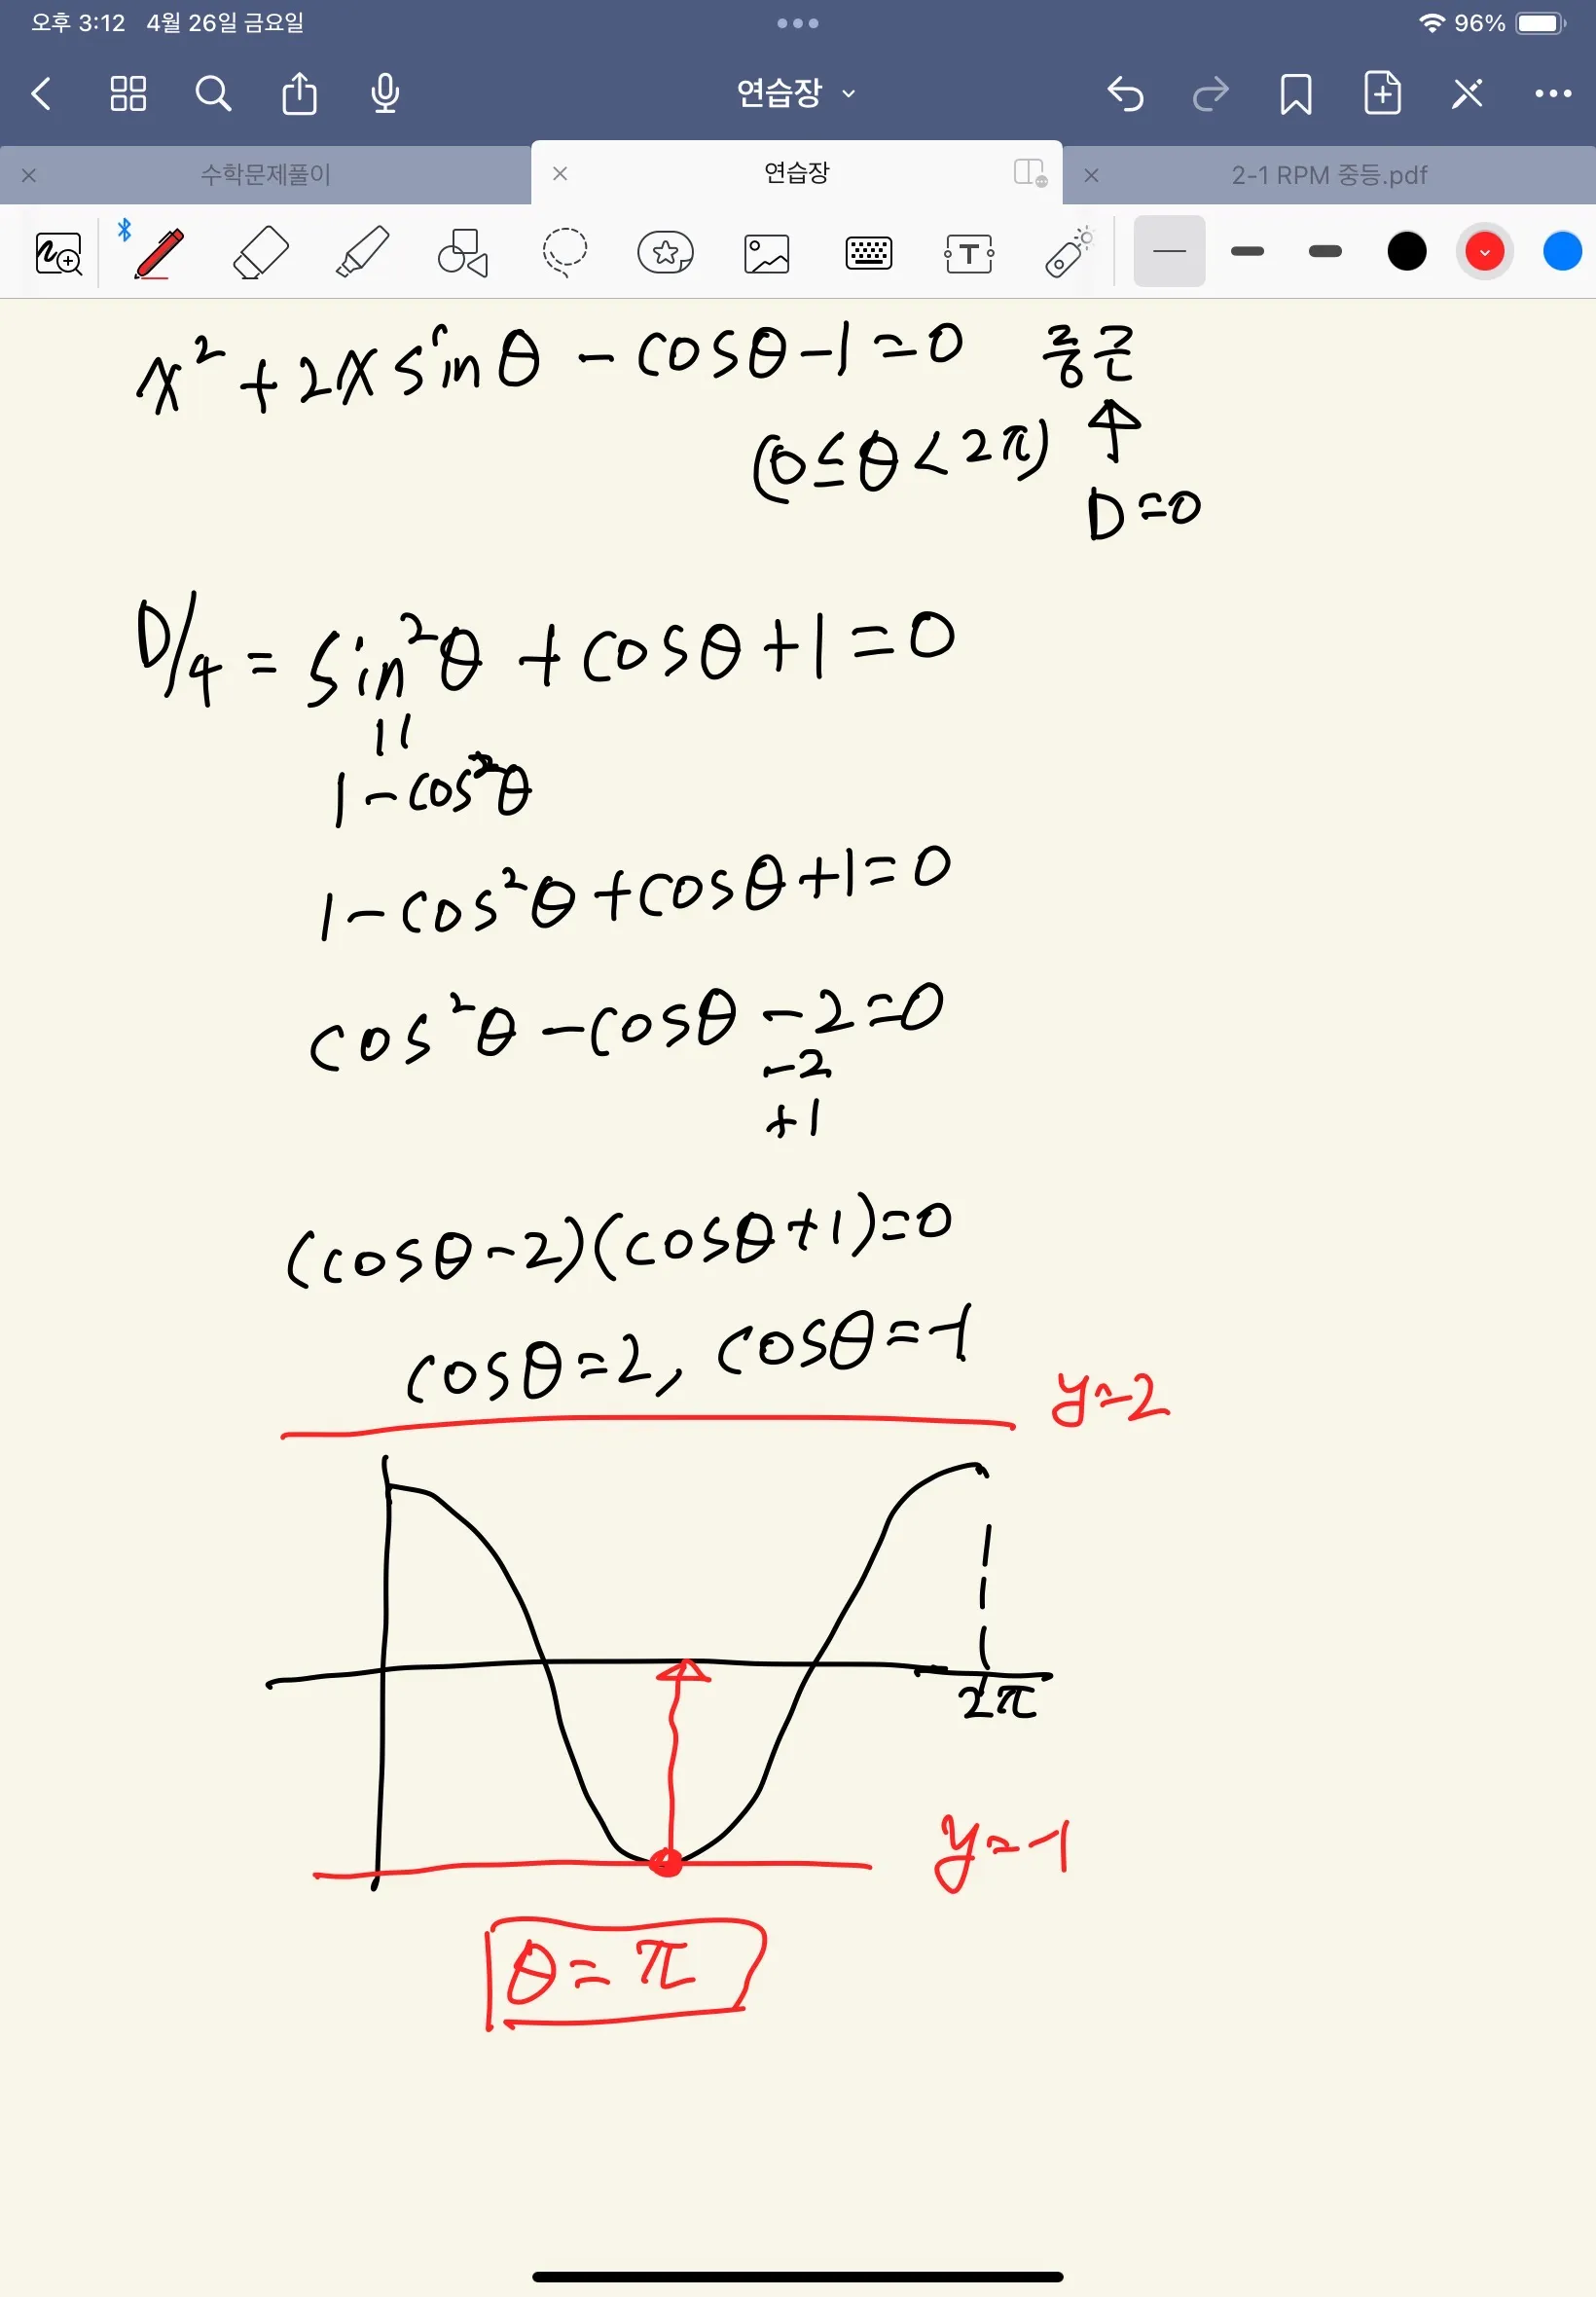 오후 3:12 4월 26일 금요일 96%
연습장
수학문제풀이 연습장 2-1 RPM 중등.pdf
T
x² + 2x sinθ - cosθ - 1 = 0 중근
(0 ≤ θ < 2π)
D = 0
D/4 = sin²θ + cosθ + 1 = 0
1 - cos²θ
1 - cos²θ + cosθ + 1 = 0
cos²θ - cosθ - 2 = 0
-2
+1
(cosθ - 2)(cosθ + 1) = 0
cosθ = 2, cosθ = -1
y = 2
2π
y = -1
θ = π